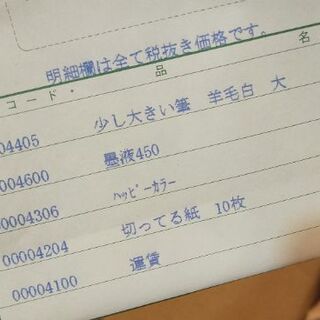 明細欄は全て税抜き価格です。
コード・品名
04405 少し大きい筆 羊毛白 大
0004600 墨液450
00004306 ﾊｯﾋﾟｰｶﾗｰ
00004204 切ってる紙 10枚
00004100 運賃